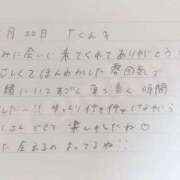 月 22日 Tくんへ
みに会いに来てくれてありがとう!
しくてほんわかした 雰囲気で
緒にいてすごく 落ち着く 時間
した〜!! ゆったりイチャイチャしながら
さんできて 楽しかったな
た会えるの まってるね!!